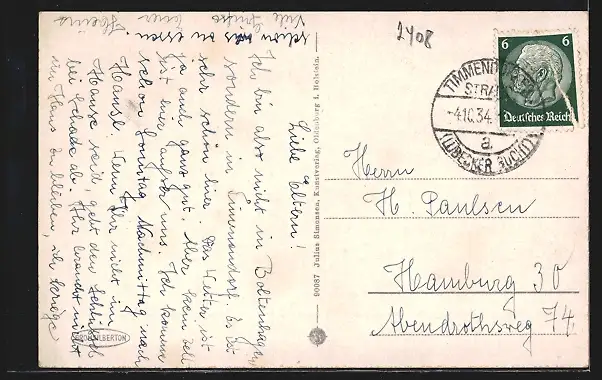 2408
6 6
Deutsches Reich
TIMMENDORFER
STRAND
-4.10.34.
a
(LÜBECKER BUCHT)
Herrn
H. Paulsen
Hamburg 30
Abendrothsweg 74.
90087 Julius Simonsen, Kunstverlag, Oldenburg i. Holstein.
Liebe Eltern!
Ich bin also nicht in Boltenhagen
sondern in Timmendorf. Es ist
sehr schön hier. Das Wetter ist
ja auch ganz gut. Aber kein Zelt
ist hier außer uns. Ich komme
schon Sonntag Nachmittag nach
Hause. Wenn Ihr nicht im
Hause seid, gebt den Schlüssel
bei Schade ab. Ihr braucht nicht
im Haus zu bleiben, ich kriege
schon was zu essen
Viele Grüße
Euer